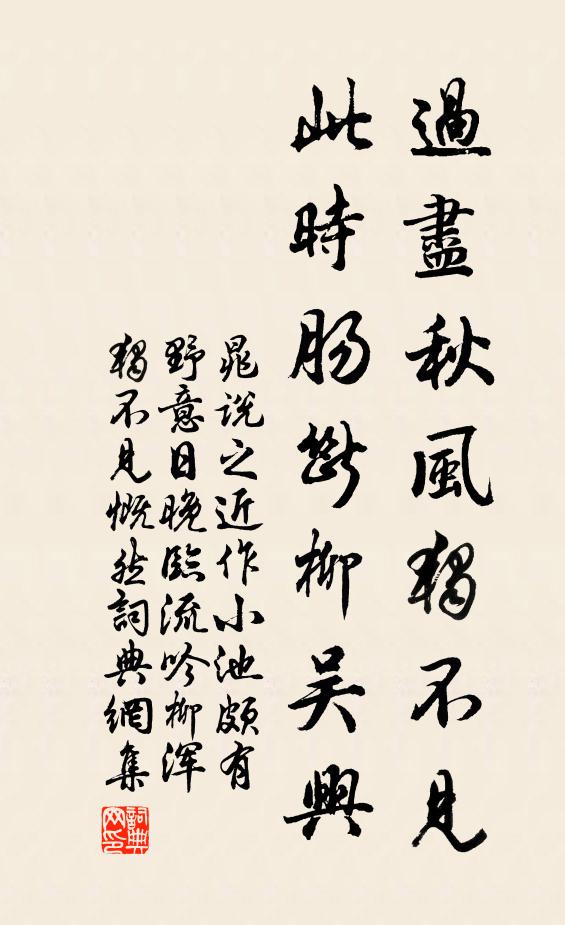 過盡秋風獨不見
此時腸斷柳吴興
晁説之近作小池頗有
野意日晚臨流吟柳渾
獨不見慨然詞典網集
詞典網印